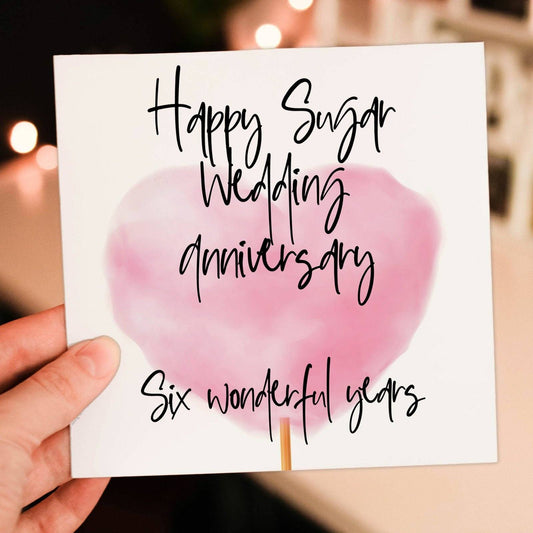 Happy Sugar
Wedding
anniversary
Six wonderful years